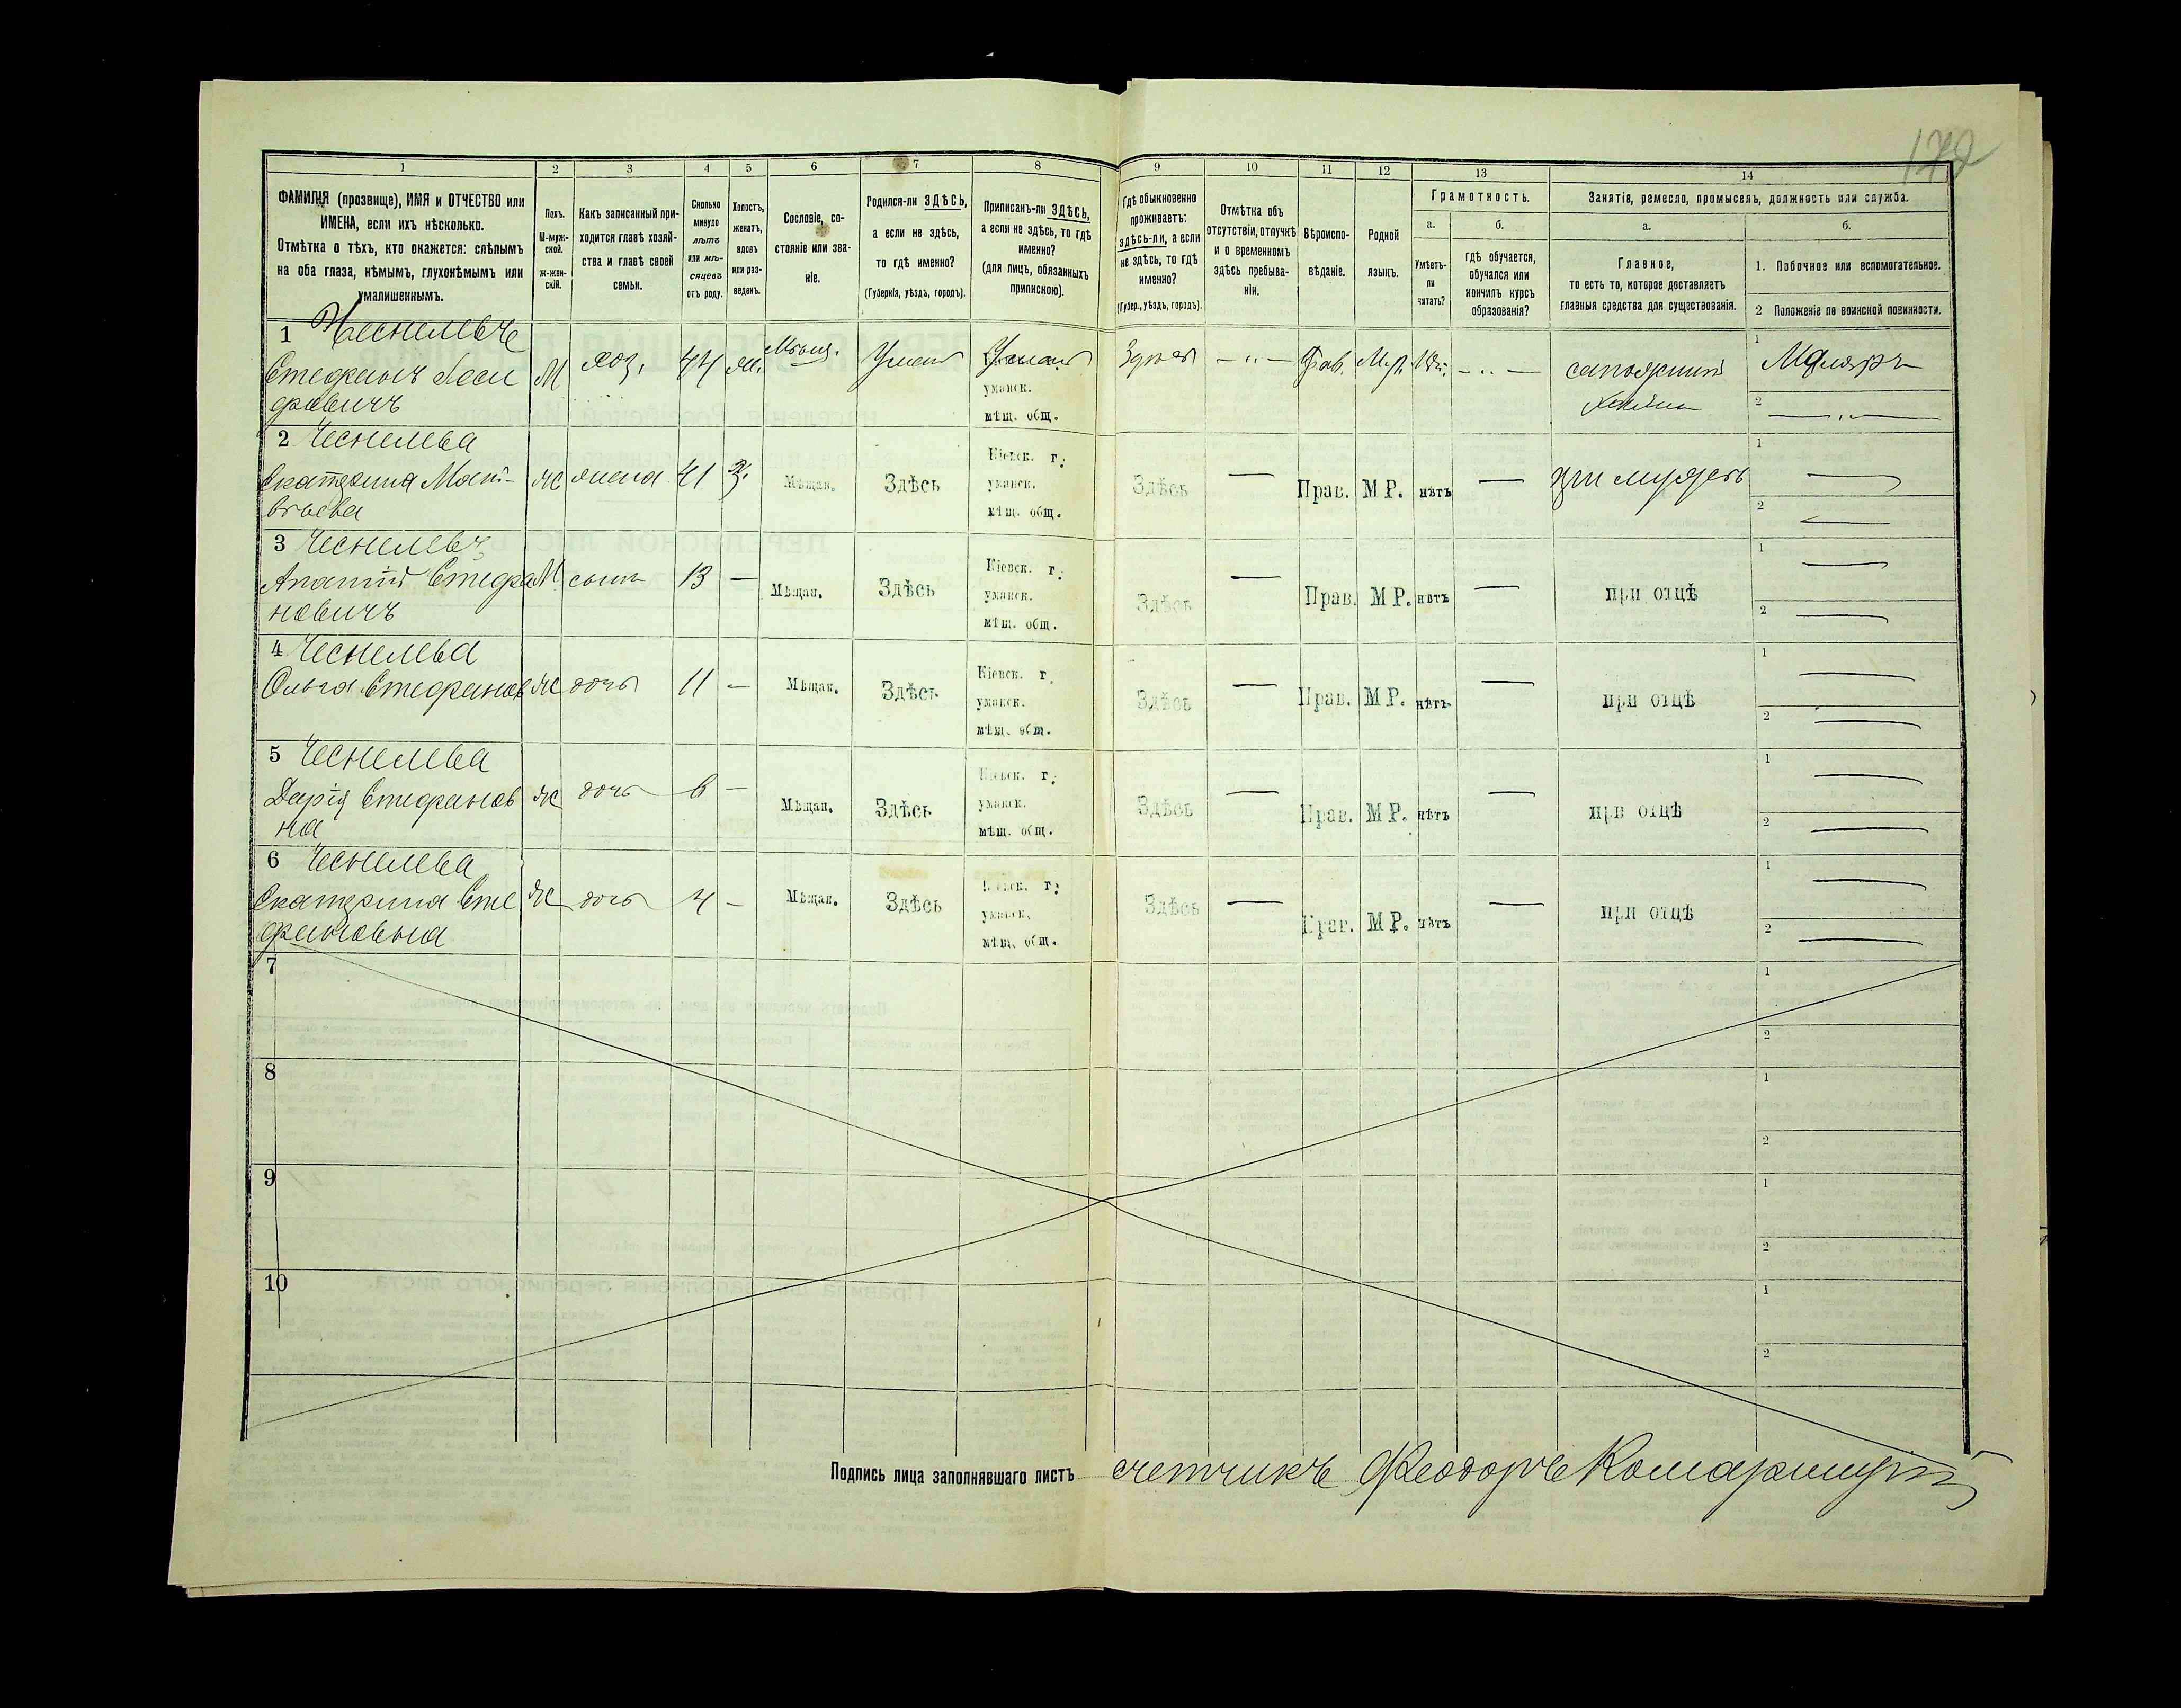 172
1 2 3 4 5 6 7 8 9 10 11 12 13 14
ФАМИЛІЯ (прозвище), ИМЯ и ОТЧЕСТВО или
ИМЕНА, если ихъ нѣсколько.
Отмѣтка о тѣхъ, кто окажется: слѣпымъ
на оба глаза, нѣмымъ, глухонѣмымъ или
умалишеннымъ.
Полъ.
М-муж-
ской.
ж-жен-
скій.
Какъ записанный при-
ходится главѣ хозяй-
ства и главѣ своей
семьи.
Сколько
минуло
лѣтъ
или мѣ-
сяцевъ
отъ роду.
Холостъ,
женатъ,
вдовъ
или раз-
веденъ.
Сословіе, со-
стояніе или зва-
ніе.
Родился-ли ЗДѢСЬ,
а если не здѣсь,
то гдѣ именно?
(Губернія, уѣздъ, городъ).
Приписанъ-ли ЗДѢСЬ,
а если не здѣсь, то гдѣ
именно?
(для лицъ, обязанныхъ
припискою).
Гдѣ обыкновенно
проживаетъ:
здѣсь-ли, а если
не здѣсь, то гдѣ
именно?
(Губер., уѣздъ, городъ).
Отмѣтка объ
отсутствіи, отлучкѣ
и о временномъ
здѣсь пребыва-
ніи.
Вѣроиспо-
вѣданіе.
Родной
языкъ.
Грамотность.
а.
Умѣетъ-
ли
читать?
б.
гдѣ обучается,
обучался или
кончилъ курсъ
образованія?
Занятіе, ремесло, промыселъ, должность или служба.
а.
Главное,
то есть то, которое доставляетъ
главныя средства для существованія.
б.
1. Побочное или вспомогательное.
2 Положеніе по воинской повинности.
1
Стефанъ
М хоз. 44 ж. Мѣщ.
уманск.
мѣщ. общ.
Здѣсь Прав. М.р.
1 Маляръ
2
2 Чеснилева
Екатерина Мат-
вѣева
Ж жена 41 З. Мѣщан. Здѣсь
Кіевск. г.
уманск.
мѣщ. общ.
Здѣсь — Прав. МР. нѣтъ — при мужѣ
1 —
2 —
3
Стефа
новичъ
М сынъ 13 — Мѣщан. Здѣсь
Кіевск. г.
уманск.
мѣщ. общ.
Здѣсь — Прав. МР. нѣтъ — при отцѣ
1 —
2 —
4 Чеснилева
Ольга Стефанов
Ж дочь 11 — Мѣщан. Здѣсь
Кіевск. г.
уманск.
мѣщ. общ.
Здѣсь — Прав. МР. нѣтъ — при отцѣ
1 —
2 —
5 Чеснилева
Дарія Стефанов
на
Ж дочь 6 — Мѣщан. Здѣсь
Кіевск. г.
уманск.
мѣщ. общ.
Здѣсь — Прав. МР. нѣтъ — при отцѣ
1 —
2 —
6 Чеснилева
Екатерина Сте
фановна
Ж дочь 4 — Мѣщан. Здѣсь
Кіевск. г.
уманск.
мѣщ. общ.
Здѣсь — Прав. МР. нѣтъ — при отцѣ
1 —
2 —
7 1
2
8 1
2
9 1
2
10 1
2
Подпись лица заполнявшаго листъ счетчикъ Феодоръ Комарницкій